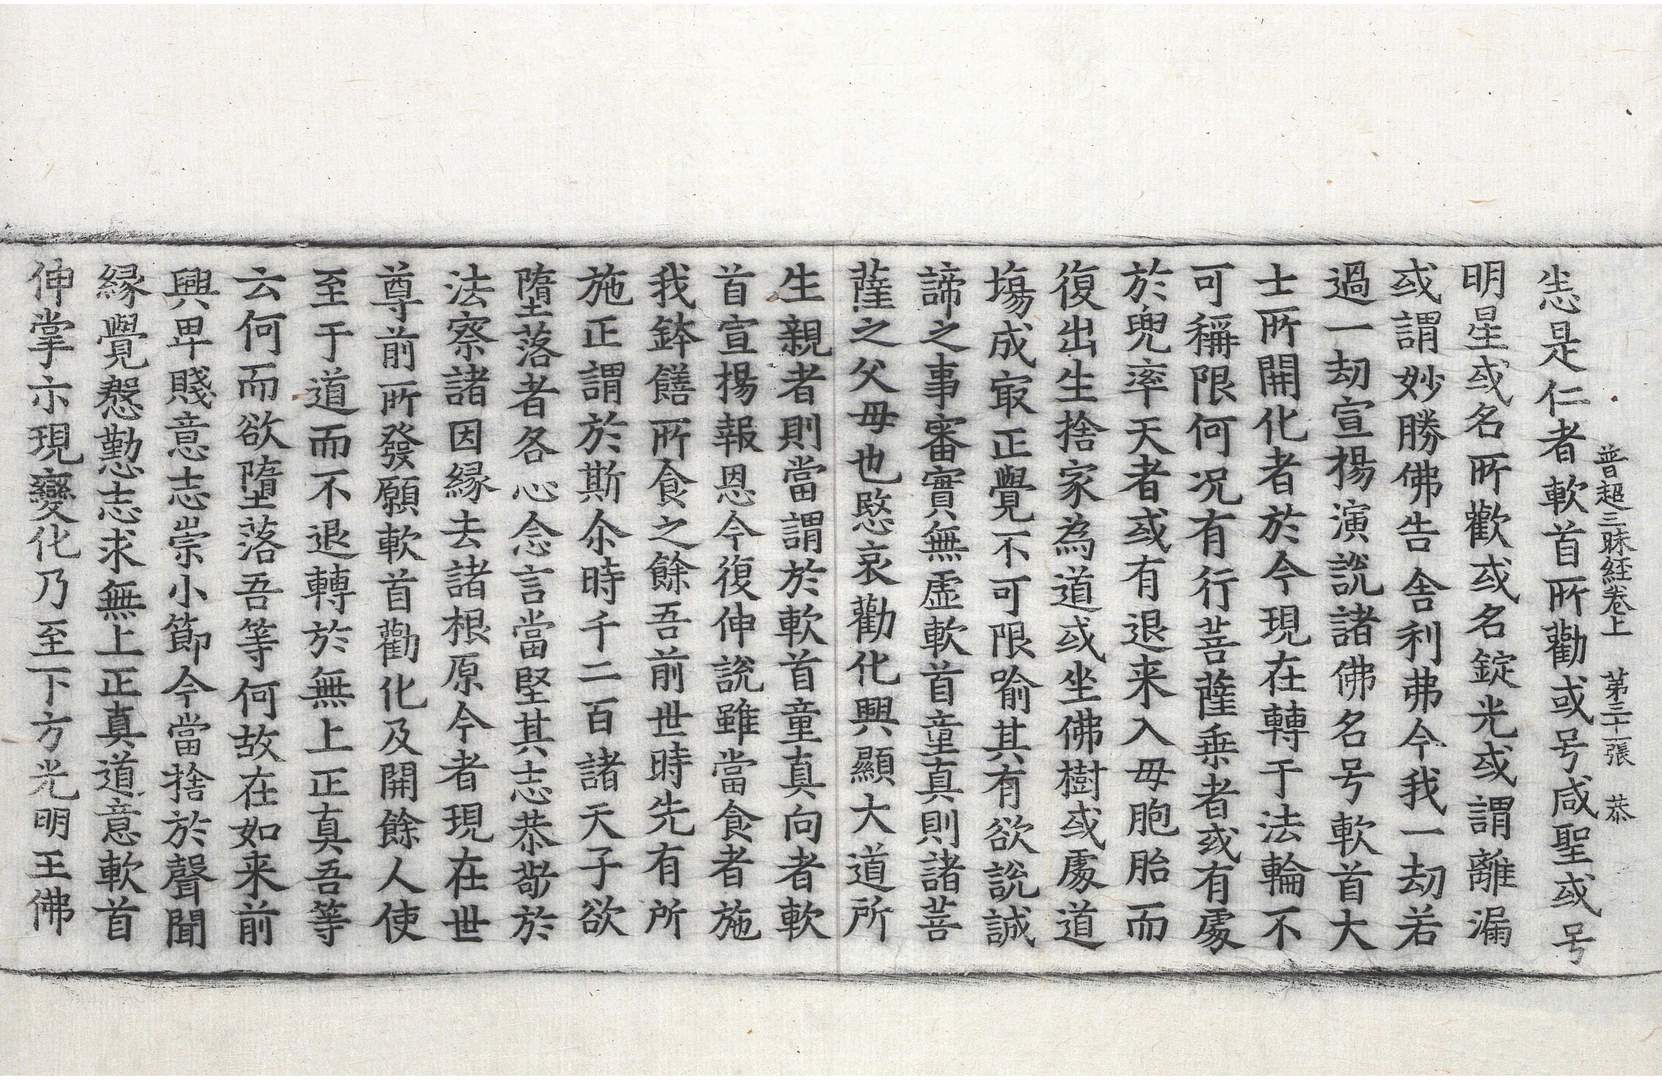 普超三昧経卷上　第三十一張　恭
恙是仁者軟首所勸或号咸聖或号
明星或名所歡或名錠光或謂離漏
或謂妙勝佛告舎利弗今我一劫若
過一劫宣揚演說諸佛名号軟首大
士所開化者於今現在轉于法輪不
可稱限何况有行菩薩乗者或有處
於兜率天者或有退来入毋胞胎而
復出生捨家為道或坐佛樹或處道
塲成㝡正覺不可限喻其有欲說誠
諦之事審實無虛軟首童真則諸菩
薩之父毋也愍哀勸化興顯大道所
生親者則當謂於軟首童真向者軟
首宣揚報恩今復伸說雖當食者施
我鉢饍所食之餘吾前世時先有所
施正謂於斯尒時千二百諸天子欲
墮落者各心念言當堅其志恭敬於
法察諸因縁去諸根原今者現在世
尊前所發願軟首勸化及開餘人使
至于道而不退轉於無上正真吾等
云何而欲墮落吾等何故在如来前
興卑賤意志崇小節今當捨於聲聞
縁覺慇懃志求無上正真道意軟首
伸掌示現變化乃至下方光明王佛